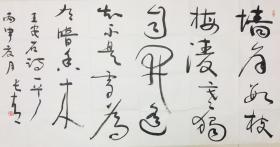 墙角数枝
梅凌寒独
自开遥
知不是雪为
有暗香来
王安石诗一首
丙申夏月